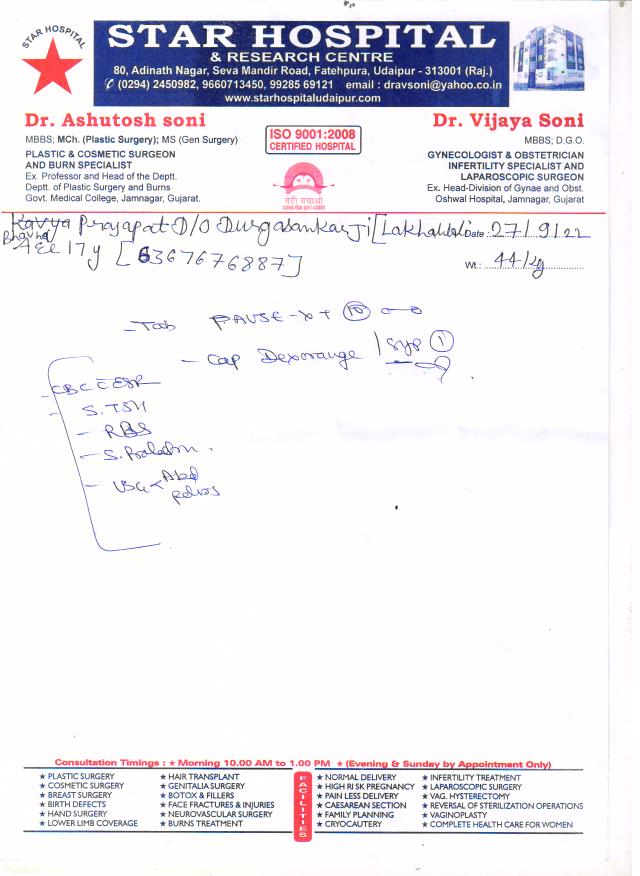 STAR HOSPITAL
STAR HOSPITAL
& RESEARCH CENTRE
80, Adinath Nagar, Seva Mandir Road, Fatehpura, Udaipur - 313001 (Raj.)
✆ (0294) 2450982, 9660713450, 99285 69121 email : dravsoni@yahoo.co.in
www.starhospitaludaipur.com
Dr. Ashutosh soni
MBBS; MCh. (Plastic Surgery); MS (Gen Surgery)
PLASTIC & COSMETIC SURGEON
AND BURN SPECIALIST
Ex. Professor and Head of the Deptt.
Deptt. of Plastic Surgery and Burns
Govt. Medical College, Jamnagar, Gujarat.
ISO 9001:2008
CERTIFIED HOSPITAL
बेटी बचाओ
Dr. Vijaya Soni
MBBS; D.G.O.
GYNECOLOGIST & OBSTETRICIAN
INFERTILITY SPECIALIST AND
LAPAROSCOPIC SURGEON
Ex. Head-Division of Gynae and Obst.
Oshwal Hospital, Jamnagar, Gujarat
Kavya Prajapat D/O Durgasankarji Date : 27/9/22
Bhavna
Age 17y [6367676887] Wt.: 44/kg
- Tab PAUSE-XT (10)
- Cap Dexorange / Syp (1)
CBC C ESR
- S. TSH
- RBS
- S. Prolactin
- USG < Abd
Pelvis
Consultation Timings : ★ Morning 10.00 AM to 1.00 PM ★ (Evening & Sunday by Appointment Only)
★ PLASTIC SURGERY
★ COSMETIC SURGERY
★ BREAST SURGERY
★ BIRTH DEFECTS
★ HAND SURGERY
★ LOWER LIMB COVERAGE
★ HAIR TRANSPLANT
★ GENITALIA SURGERY
★ BOTOX & FILLERS
★ FACE FRACTURES & INJURIES
★ NEUROVASCULAR SURGERY
★ BURNS TREATMENT
FACILITIES
★ NORMAL DELIVERY
★ HIGH RI SK PREGNANCY
★ PAIN LESS DELIVERY
★ CAESAREAN SECTION
★ FAMILY PLANNING
★ CRYOCAUTERY
★ INFERTILITY TREATMENT
★ LAPAROSCOPIC SURGERY
★ VAG. HYSTERECTOMY
★ REVERSAL OF STERILIZATION OPERATIONS
★ VAGINOPLASTY
★ COMPLETE HEALTH CARE FOR WOMEN